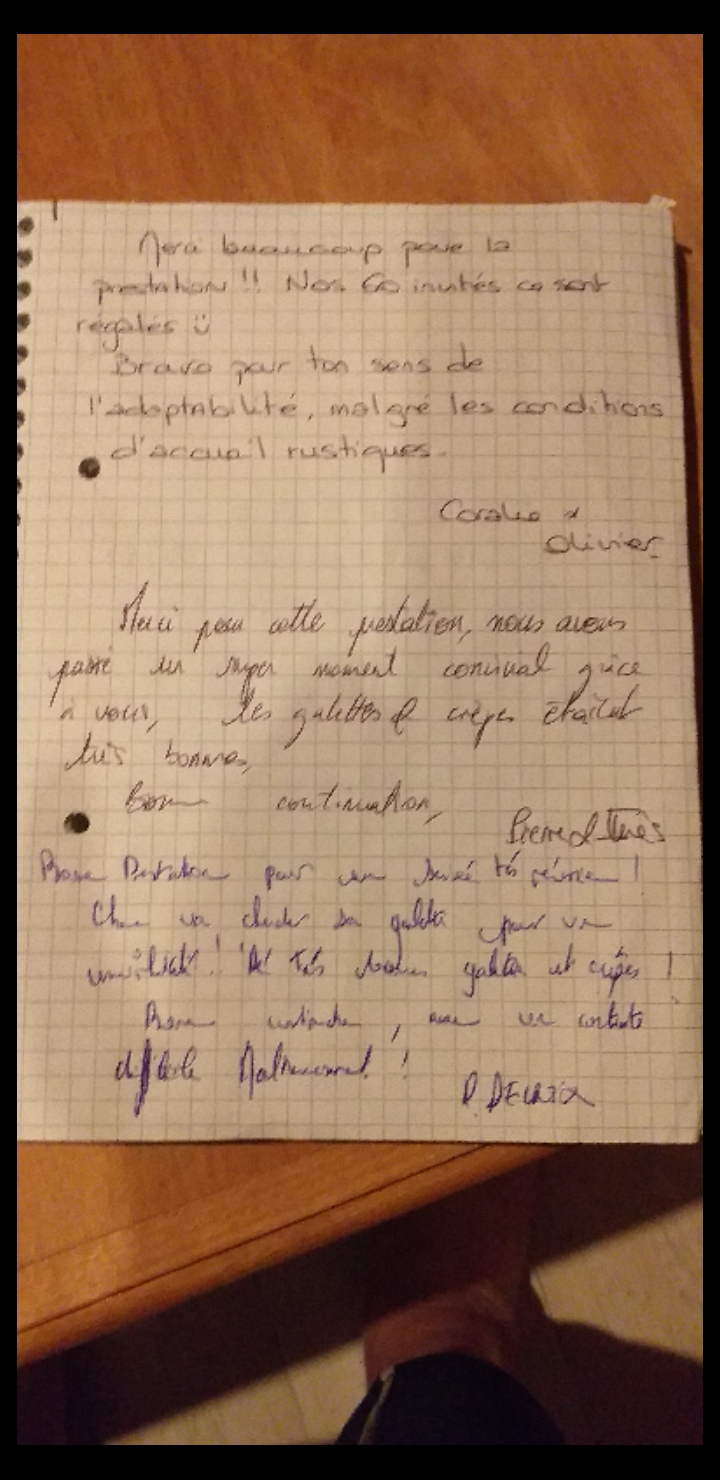 Merci beaucoup pour la
prestation !! Nos 60 invités ce sont
régalés ü
Bravo pour ton sens de
l'adaptabilité, malgré les conditions
d'accueil rustiques.
Coralie &
Olivier.
Merci pour cette prestation, nous avons
passé un super moment convivial grâce
à vous, les galettes & crêpes étaient
très bonnes,
Bonne continuation,
Pierre &
Bonne Prestation pour une soirée très
chercher sa galette pour un
! De très bonnes galettes et crêpes !
Bonne continuation, avec un contexte
difficile Maintenant !
P.